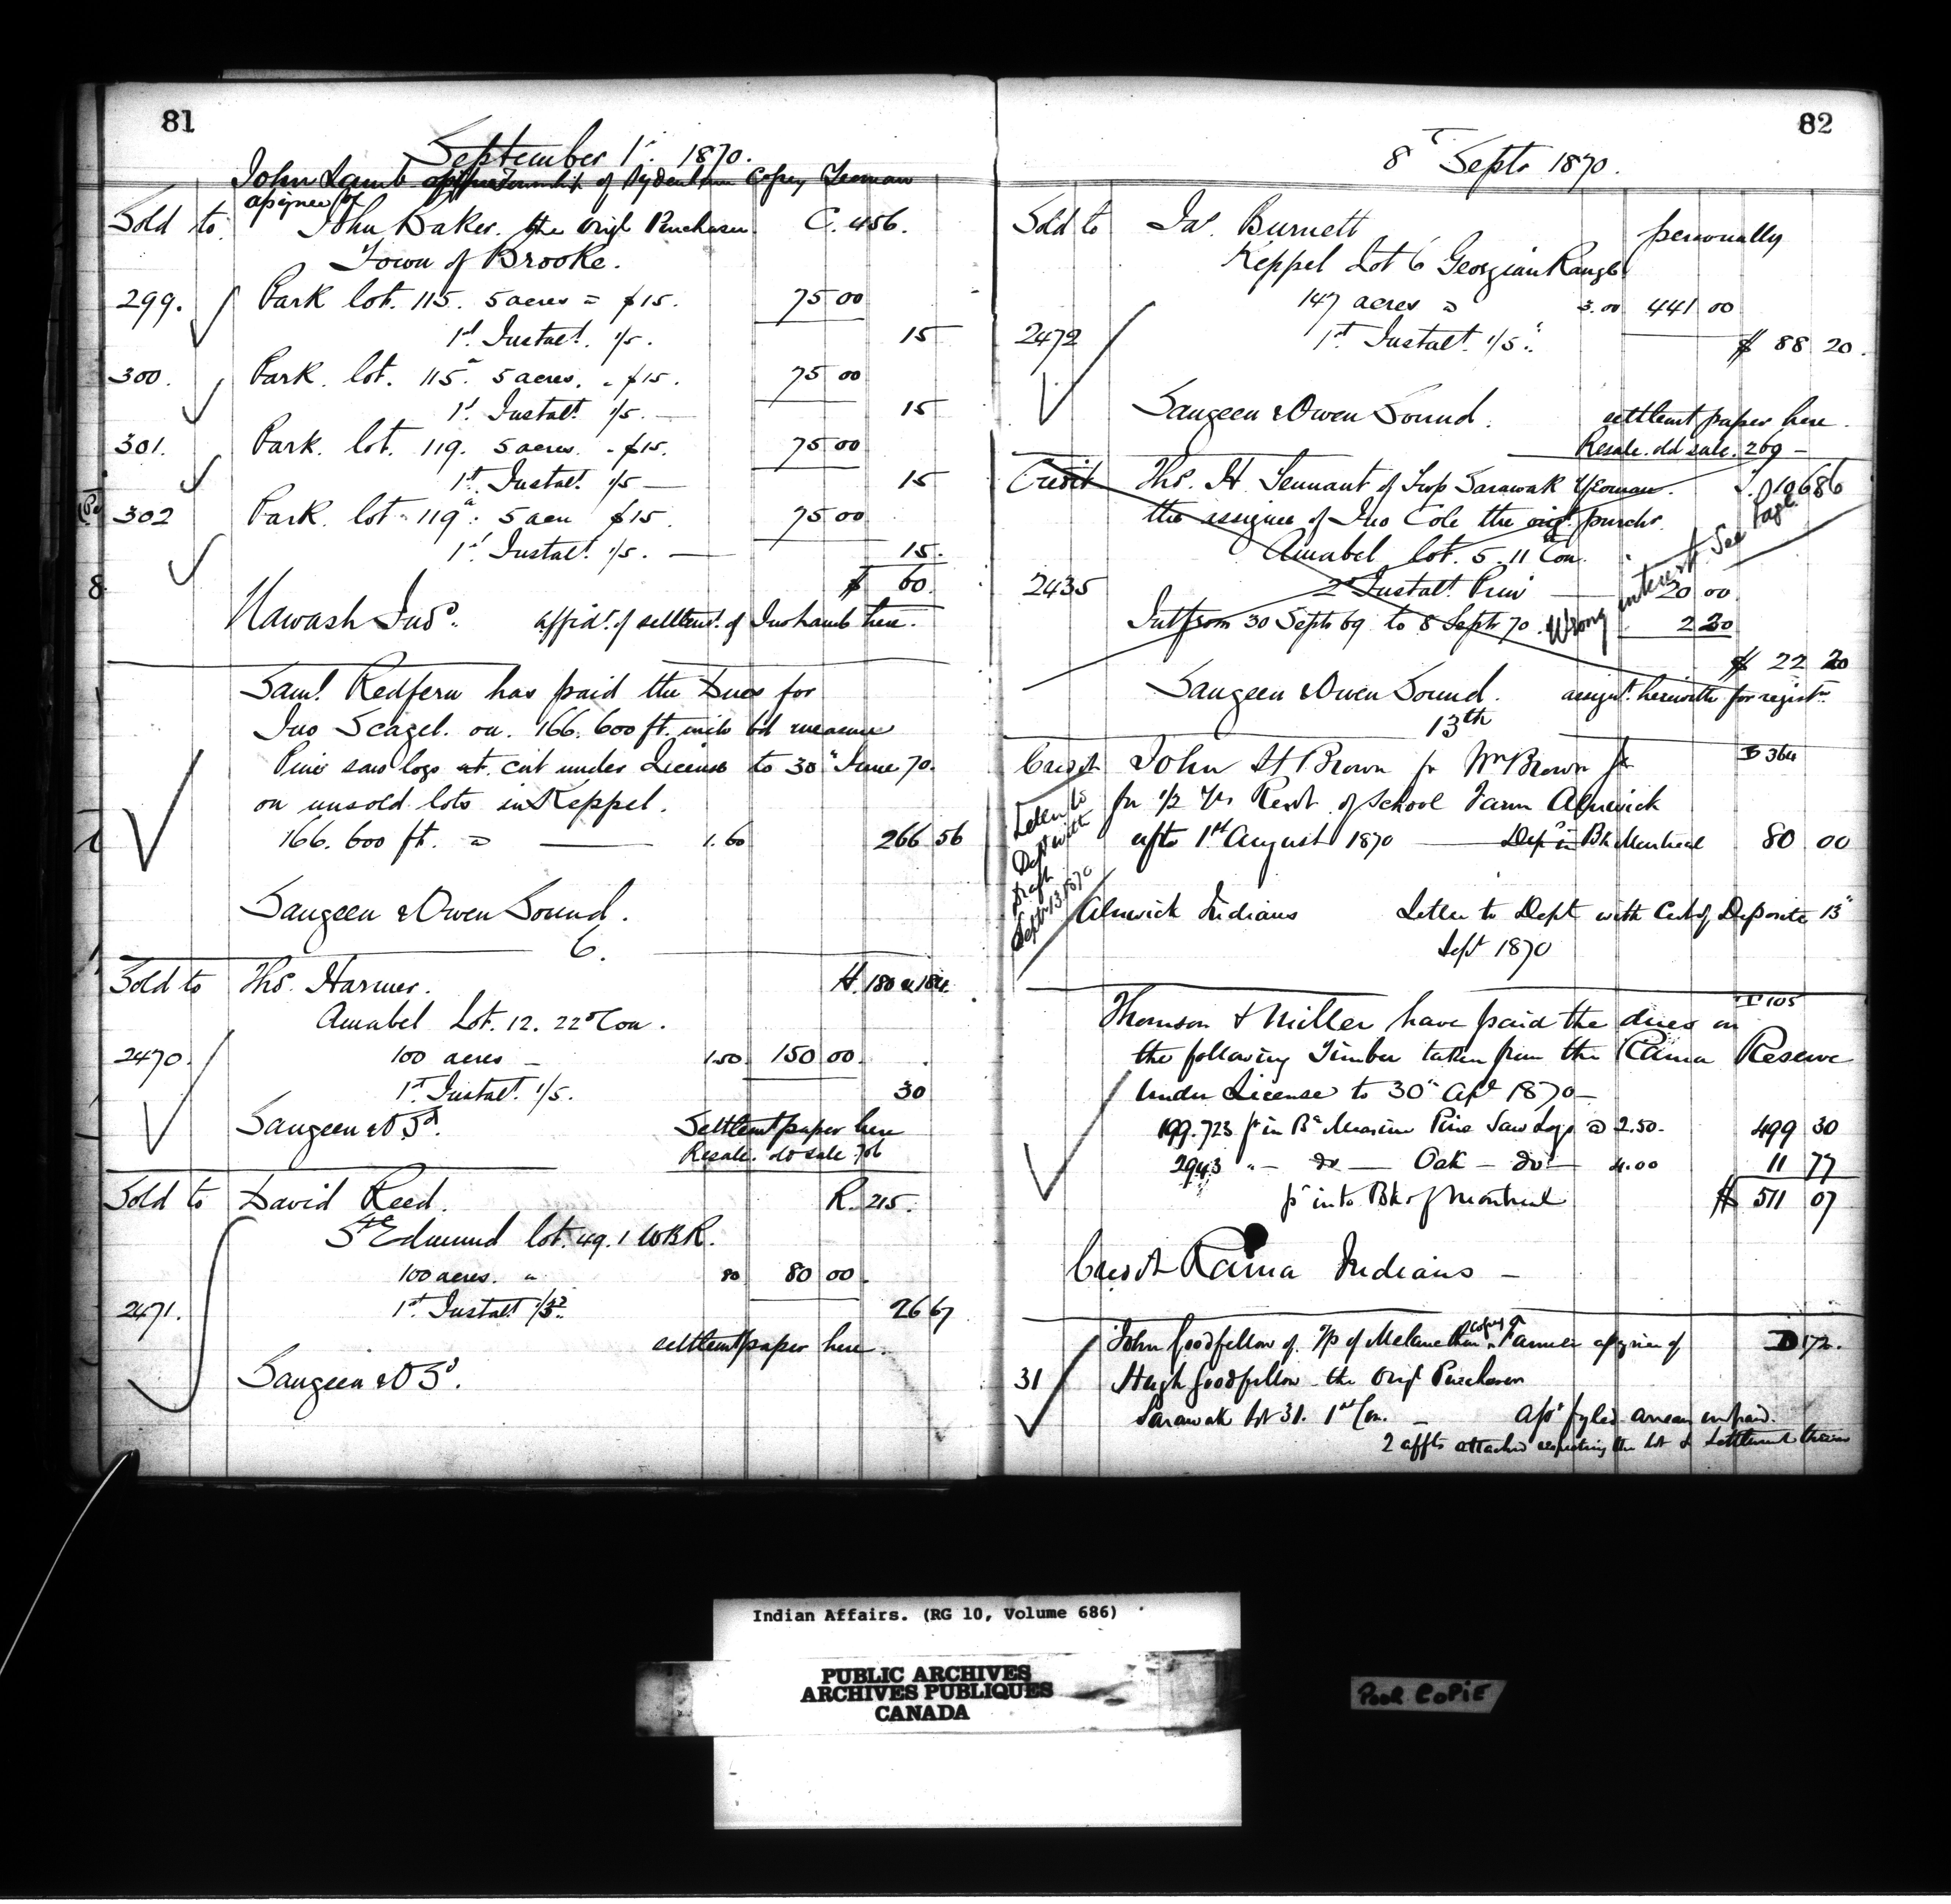 81
September 1st. 1870.
John Lamb of the Township of Sydenham Co Grey Yeoman
assignee of
Sold to John Baker. the Origl Purchaser C. 456.
Town of Brooke.
299. Park lot. 115. 5 acres = $15. 75 00
1st Instalt. 1/5. 15
300. Park. lot. 115a 5 acres. " $15. 75 00
1st. Instalt. 1/5. — 15
301. Park. lot. 119. 5 acres. " $15. 75 00
1st. Instalt. 1/5 — 15
302 Park. lot. 119a. 5 acres $15. 75 00
1st Instalt. 1/5. — 15.
8 $ 60.
Nawash Inds. affidt. of settlemt. of Jno Lamb here.
Saml. Redfern has paid the Dues for
Jno Scagel. on. 166.600 ft. inch bd measure
Pine saw logs at. cut under License to 30" June 70.
on unsold lots in Keppel.
166.600 ft. = — 1.60 266 56
Saugeen & Owen Sound.
6.
Sold to Thos. Harmer. H. 180 & 184.
Amabel Lot. 12. 22d Con.
2470. 100 acres — 1.50. 150 00.
1st. Instalt. 1/5. 30
Saugeen & O Sd. Settlemt paper here
Resale. old sale 706
Sold to David Reed. R. 215.
St Edmund lot. 49. 1 WBR.
100 acres. " 80 80 00.
2471. 1st Instalt 1/3rd. 26 67
settlemt paper here.
Saugeen & O Sd.
82
8th Septr 1870.
Sold to Jas. Burnett personally
Keppel Lot 6 Georgian Range
147 acres = 3.00 441 00
2472 1st Instalt. 1/5". $ 88 20.
Saugeen & Owen Sound. settlemt paper here.
Resale. old sale. 269 —
Credit Thos. H Tennant of Twp Sarawak Yeoman. T.
the assignee of Jno Cole the orig. purchr.
Amabel lot. 5. 11 Con.
2435 2d Instalt Prin — 20 00.
Int from 30 Septr 69 to 8 Septr 70. 2 20
Wrong interest See Page 86
$ 22 20
Saugeen & Owen Sound. assignt. herewith for registn.
13th
Credit John H Brown fr Wm Brown Jr D 364
for 1/2 Yrs Rent of School Farm Alnwick
upto 1st August 1870 — Depd in Bk Montreal 80 00
Letter to
Dept with
Draft
Septr 13. 1870
Alnwick Indians Letter to Dept with Cert of Deposite 13"
Sept 1870
T 105
Thomson & Miller have paid the dues on
the following Timber taken from the Rama Reserve
under License to 30" Apl 1870 —
199.723 ft in Bd Measure Pine Saw Logs @ 2.50. 499 30
2943 " — do — Oak — do — 4.00 11 77
pd into Bk of Montreal $ 511 07
Credit Rama Indians —
John Goodfellow of T/p of Melancthon Co Grey Farmer assignee of D 172.
31 Hugh Goodfellow the Origl Purchaser
Sarawak lot 31. 1st Con. — Asst fyled arrears unpaid.
2 affts attached respecting the lot & Settlement thereon
Indian Affairs. (RG 10, Volume 686)
PUBLIC ARCHIVES
ARCHIVES PUBLIQUES
CANADA
POOR COPIE